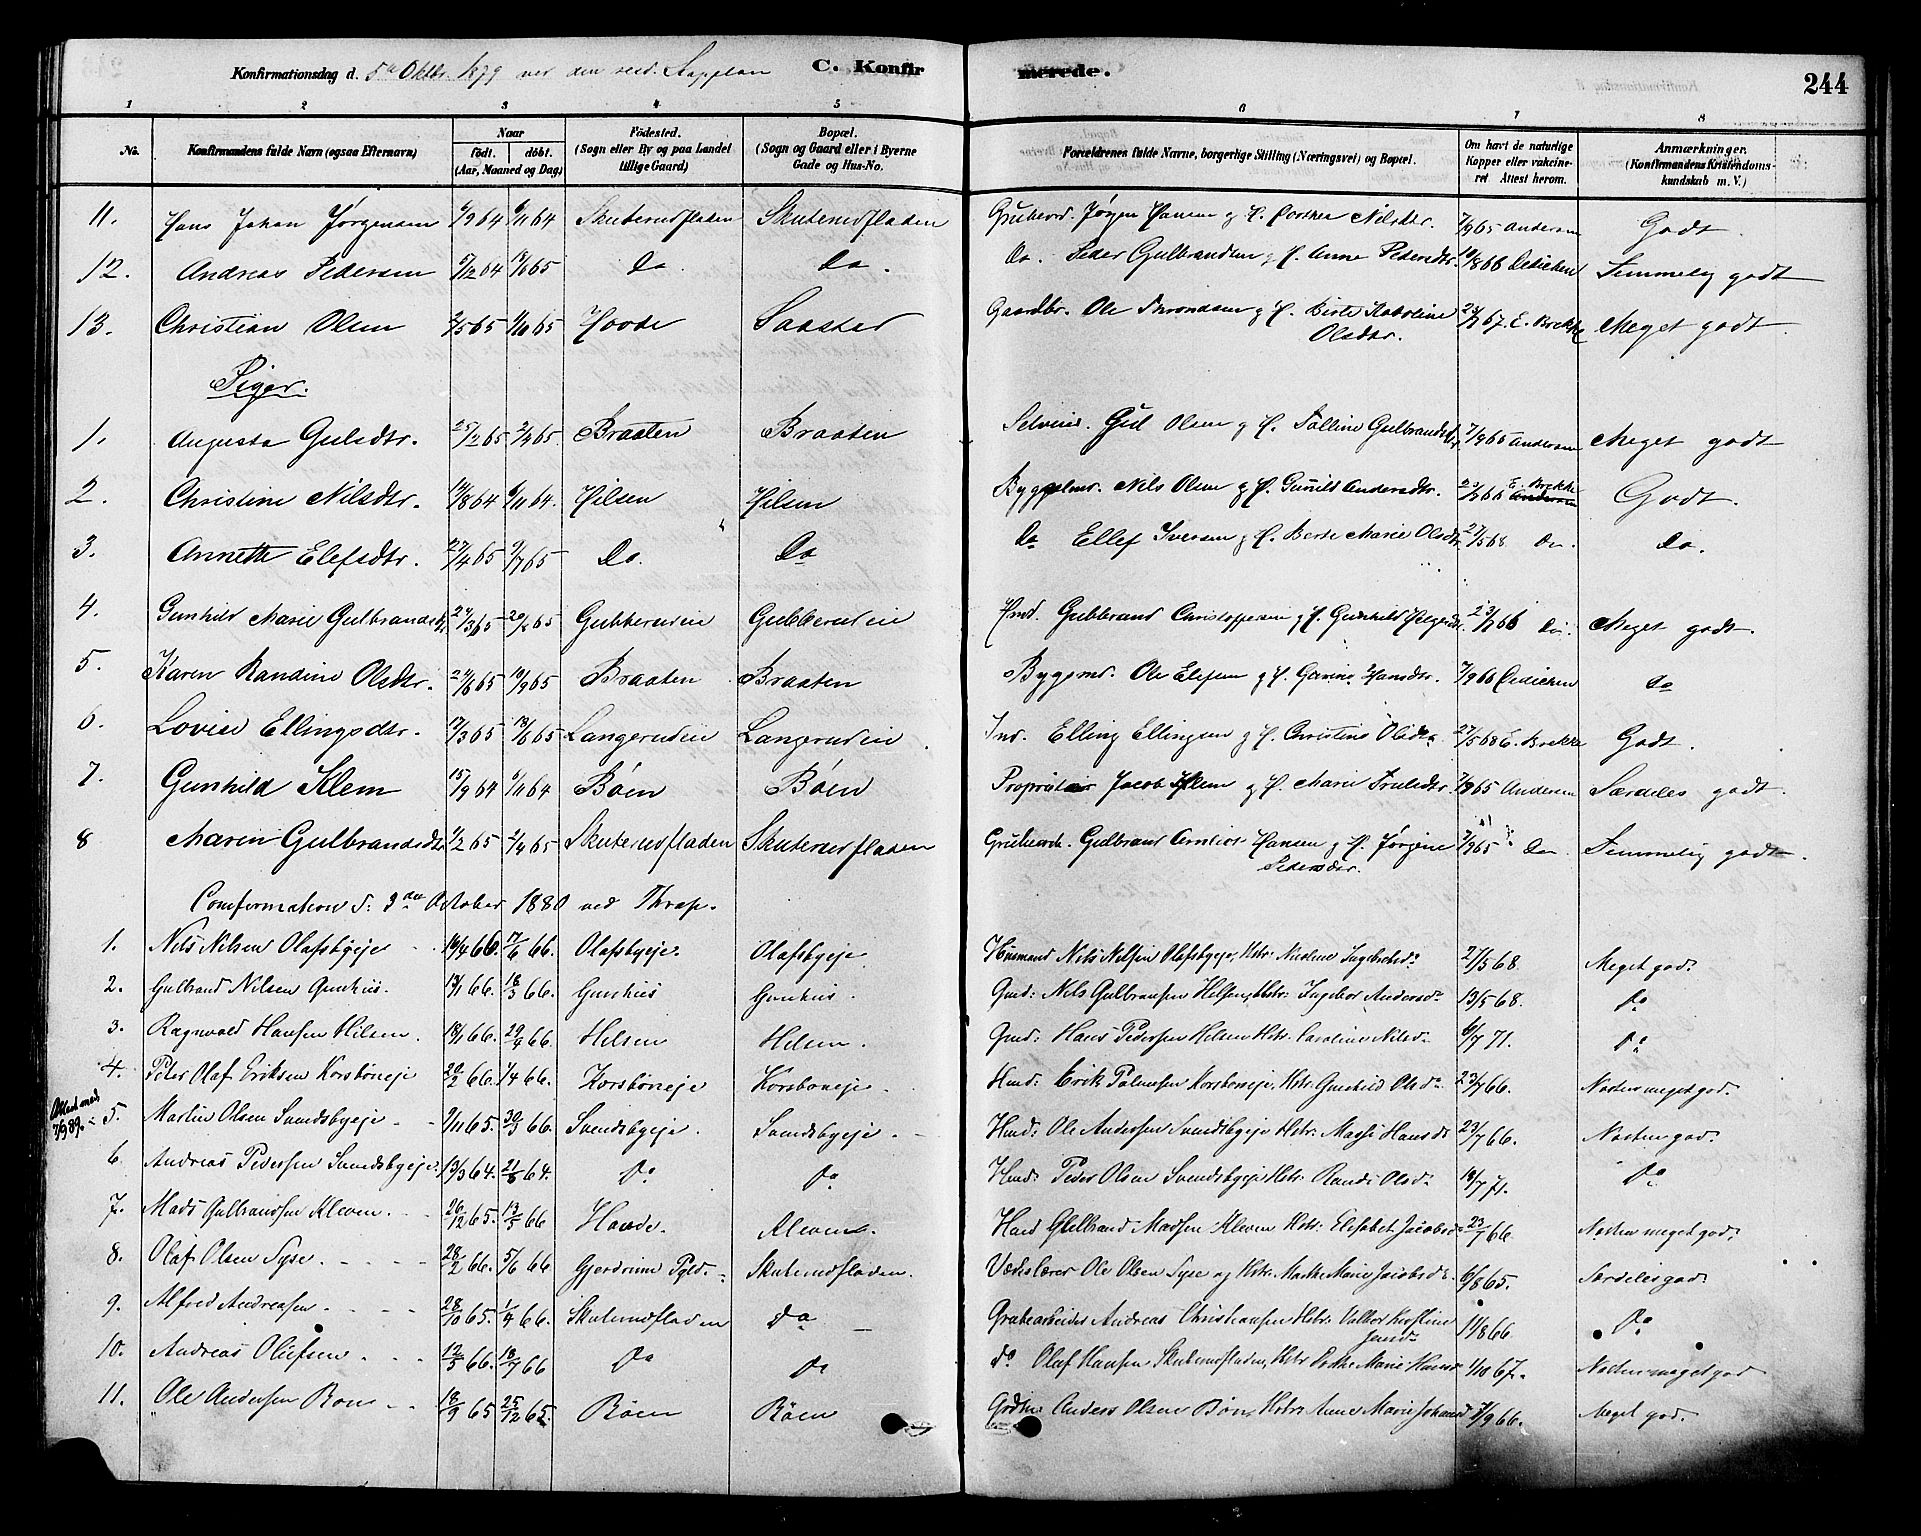 Konfirmationsdag d. 5te Oktbr. 1879 ved den resd. Kapplan C. Konfirmerede. 244
1 2 3 4 5 6 7 8
No. Konfirmandens fulde Navn (ogsaa Efternavn) Naar født. døbt. (Aar, Maaned og Dag) Födested. (Sogn eller By og paa Landet tillige Gaard) Bopæl. (Sogn og Gaard eller i Byerne Gade og Hus-No. Forældrenes fulde Navne, borgerlige Stilling (Næringsvei) og Bopæl. Om havt de naturlige Kopper eller vakcineret Attest herom. Anmærkninger. (Konfirmandens Kristendomskundskab m. V.)
11. Hans Johan Jørgensen 6/9 64 6/11 64 Skuterudfladen Skuterudfladen Grubearb. Jørgen Hansen og H. Dorthea Nilsdtr. 7/9 65 Andersen Godt.
12. Andreas Pedersen 5/12 64 65 Do. Do. Do. Peder Gulbrandsen og H. Anne Pedersdtr. 10/8 66 Temmelig godt
13. Christian Olsen 2/5 65 1/10 65 Hovde Saastad Gaardbr. Ole Throndsen og H. Birte Karoline Olsdtr. 24/7 67 E. Brekke Meget godt.
Piger.
1. Augusta Gulsdtr. 25/2 65 2/4 65 Braaten Braaten Selveier. Gul Olsen og H. Gulbrandsdtr. 7/9 65 Andersen Meget godt
2. Christine Nilsdtr. 14/8 64 6/11 64. Hilsen Hilsen Byggselmd. Nils Olsen og H. Gunild Andersdtr. 66 E. Brekke Andersen Godt.
3. Annette Elefsdtr. 27/4 65 9/7 65 Do. Do Do Ellef Iversen og H. Berte Marie Olsdtr 27/5 68 Do. Do.
4. Gunhild Marie Gulbrandsdtr 65 65 Gubberudeie Gubberudeie Hmd. Gubbrand Christoffersen og H. Gunhild 66 Do. Meget godt.
5. Karen Randine Olsdtr. 24/6 65 10/9 65 Braaten Braaten Byggsmd. Ole Elefsen og H. Hansdtr. 7/9 66 Do
6. Lovise Ellingsdtr. 17/3 65 65 Langerudeie Langerudeie Ind. Elling Ellingsen og H. Christine Olsdtr 27/5 68 E. Brekke Godt.
7. Gunhild Klem 15/9 64 6/11 64 Böen Böen Proprietær Jacob Klem og H. Marie Trulsdtr. 7/9 65 Andersen Særdeles godt
8 Maren Gulbrandsdtr 1/2 65 2/4 65 Skuterudfladen Skuterudfladen Grubearb. Gulbrand Hansen og H. Jørgine Pedersdtr. 7/9 65 Do. Temmelig godt.
Comfirmation d: 3die October 1880 ved Thrap.
1. Nils Nilsen Olafsbyeje 14/4 66. 17/6 66. Olafsbyeje. Olafsbyeje Husmand Nils Nilsen Olafsbyeje, Hstr. 27/5 68. Meget god.
2. Gulbrand Nilsen Gunhus. 13/1 66. 18/3 66. Gunhus Gunhus. Gmd: Nils Gulbransen Helsen, Hstr. Ingebor Andersd. 13/5 68. Do
3. Ragnvald Hansen Hilsen. 18/1 66. 66. Helsen Helsen. Gmd: Hans Pedersen Helsen Hstr. Caroline Nilsd. 6/7 71. Do
4. Peter Olaf Eriksen Korsböneje 20/2 66. 1/4 66. Korsböneje Korsboneje. Hmd: Erik Korsboneje, Hstr. Gunhild Olsd. 23/7 66. Nosten meget god.
Attest med 7/9 89. 5. Martin Olsen Svendsbyeje 9/11 65. 30/3 66. Svendsbyeje. Svendsbyeje. Hmd: Ole Andersen Svendsbyeje Hstr. Hansd. 23/7 66. Nosten god.
6. Andreas Pedersen Svendsbyeje. 13/3 64. 64. Do Do Hmd: Peder Olsen Svendsbyeje Hstr: Randi Olsd. 18/7 71. Do
7. Mads Gulbransen Kleven. 26/12 65. 13/5 66 Hovde. Kleven. Hmd Gulbrand Madsen Kleven Hstr: Elisabet Jacobsd. 23/7 66. Nosten meget god.
8. Olaf Olsen Syse. 28/2 66. 5/6 66 Gjerdrum Skuterudfladen. Ole Olsen Syse og Hstr. Marthe Marie Jacobsd. 6/8 65. Særdeles god.
9. Alfred Andreasen. 28/10 65. 1/4 66. Skuterudfladen Do Grubearbeider Andreas Christiansen Hstr. 11/8 66. Do
10. Andreas Olufsen. 12/5 66. 18/7 66 Do Do do Olaf Hansen Skuterudfladen, Hstr. Marie Hansd. 1/10 67. Nosten meget god
11. Ole Andersen Boen. 18/9 65 25/12 65. Böen Böen Anders Olsen Böen, Hstr: Anne Marie Johansd. 7/9 66. Meget god.